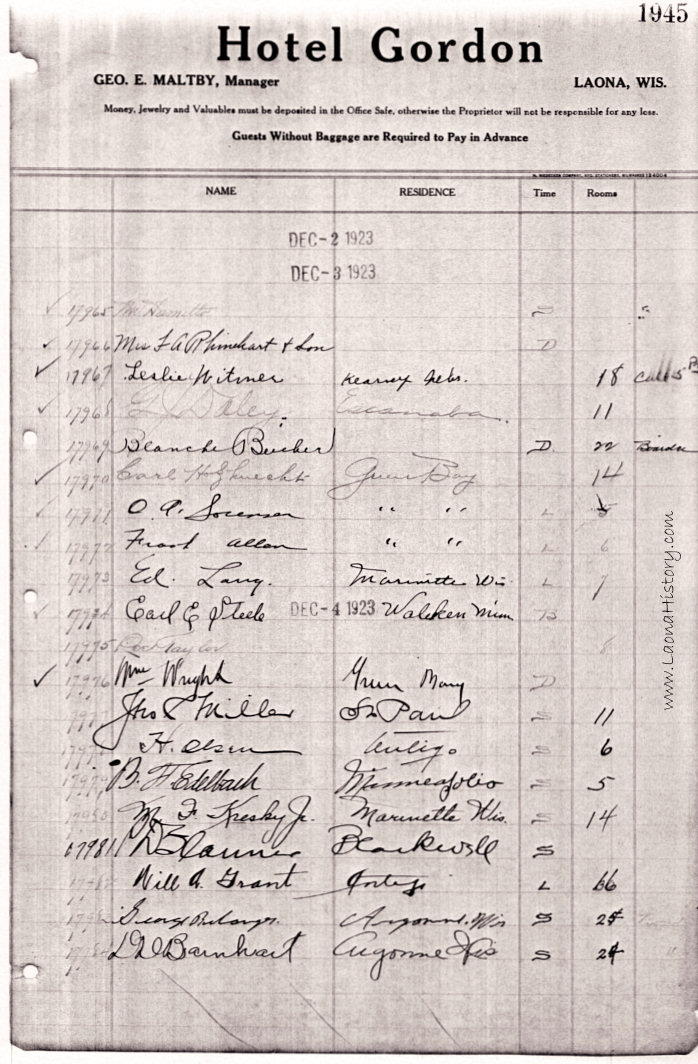 1945
Hotel Gordon
GEO. E. MALTBY, Manager LAONA, WIS.
Money, Jewelry and Valuables must be deposited in the Office Safe, otherwise the Proprietor will not be responsible for any loss.
Guests Without Baggage are Required to Pay in Advance
NAME RESIDENCE Time Rooms
DEC-2 1923
DEC-3 1923
17965
17966 Mrs F A Rhinehart & Son D
17967 Leslie Witmer Kearney Nebr. 18
17968 Daley. Escanaba. 11
17969 Blanche Bucher D. 22 Boarder
17970 Carl Green Bay 14
O. A. Sorensen " " L 5
17972 Frank Allen " " L 6
17973 Ed. Lang. Marinette Wis. L 7
Earl E Steele DEC-4 1923 B
17975 Roy Taylor 8
17976 Wm Wright Green Bay D
Jno P Miller St Paul S 11
H. Olsen Antigo S 6
B. F Edelbach Minneapolis S 5
M. F. Kresky Jr. Marinette Wis. S 14
17981 Blackwell S
Will A. Grant Antigo L 66
George Belonger. Argonne. Wis S 24
Barnhart Argonne Wis S 24
www.LaonaHistory.com